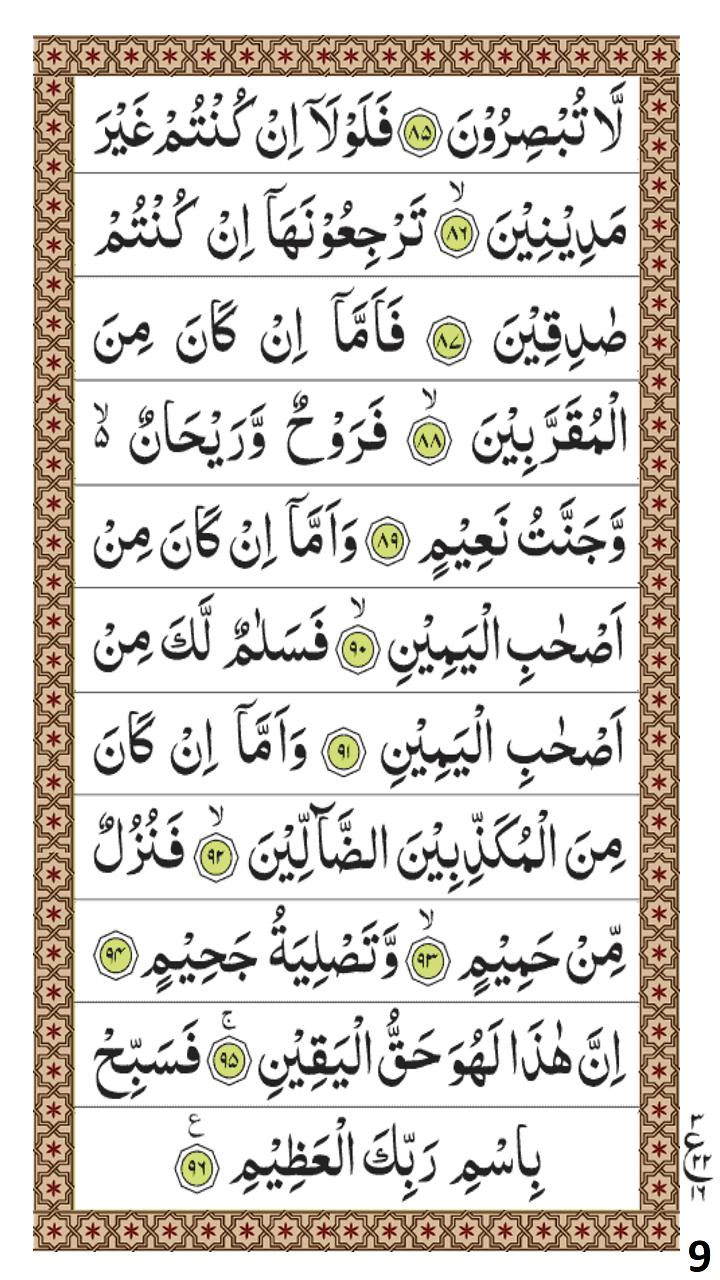 لَّا تُبْصِرُوْنَ ﴿۸۵﴾ فَلَوْلَاۤ اِنْ كُنْتُمْ غَيْرَ
مَدِيْنِيْنَ ۙ﴿۸۶﴾ تَرْجِعُوْنَهَاۤ اِنْ كُنْتُمْ
صٰدِقِيْنَ ﴿۸۷﴾ فَاَمَّاۤ اِنْ كَانَ مِنَ
الْمُقَرَّبِيْنَ ۙ﴿۸۸﴾ فَرَوْحٌ وَّرَيْحَانٌ ۙ۵
وَّجَنَّتُ نَعِيْمٍ ﴿۸۹﴾ وَاَمَّاۤ اِنْ كَانَ مِنْ
اَصْحٰبِ الْيَمِيْنِ ۙ﴿۹۰﴾ فَسَلٰمٌ لَّكَ مِنْ
اَصْحٰبِ الْيَمِيْنِ ﴿۹۱﴾ وَاَمَّاۤ اِنْ كَانَ
مِنَ الْمُكَذِّبِيْنَ الضَّآلِّيْنَ ۙ﴿۹۲﴾ فَنُزُلٌ
مِّنْ حَمِيْمٍ ۙ﴿۹۳﴾ وَّتَصْلِيَةُ جَحِيْمٍ ﴿۹۴﴾
اِنَّ هٰذَا لَهُوَ حَقُّ الْيَقِيْنِ ۚ﴿۹۵﴾ فَسَبِّحْ
بِاسْمِ رَبِّكَ الْعَظِيْمِ ﴿۹۶﴾ ع
۳
ع
۲۲
۱۶
9